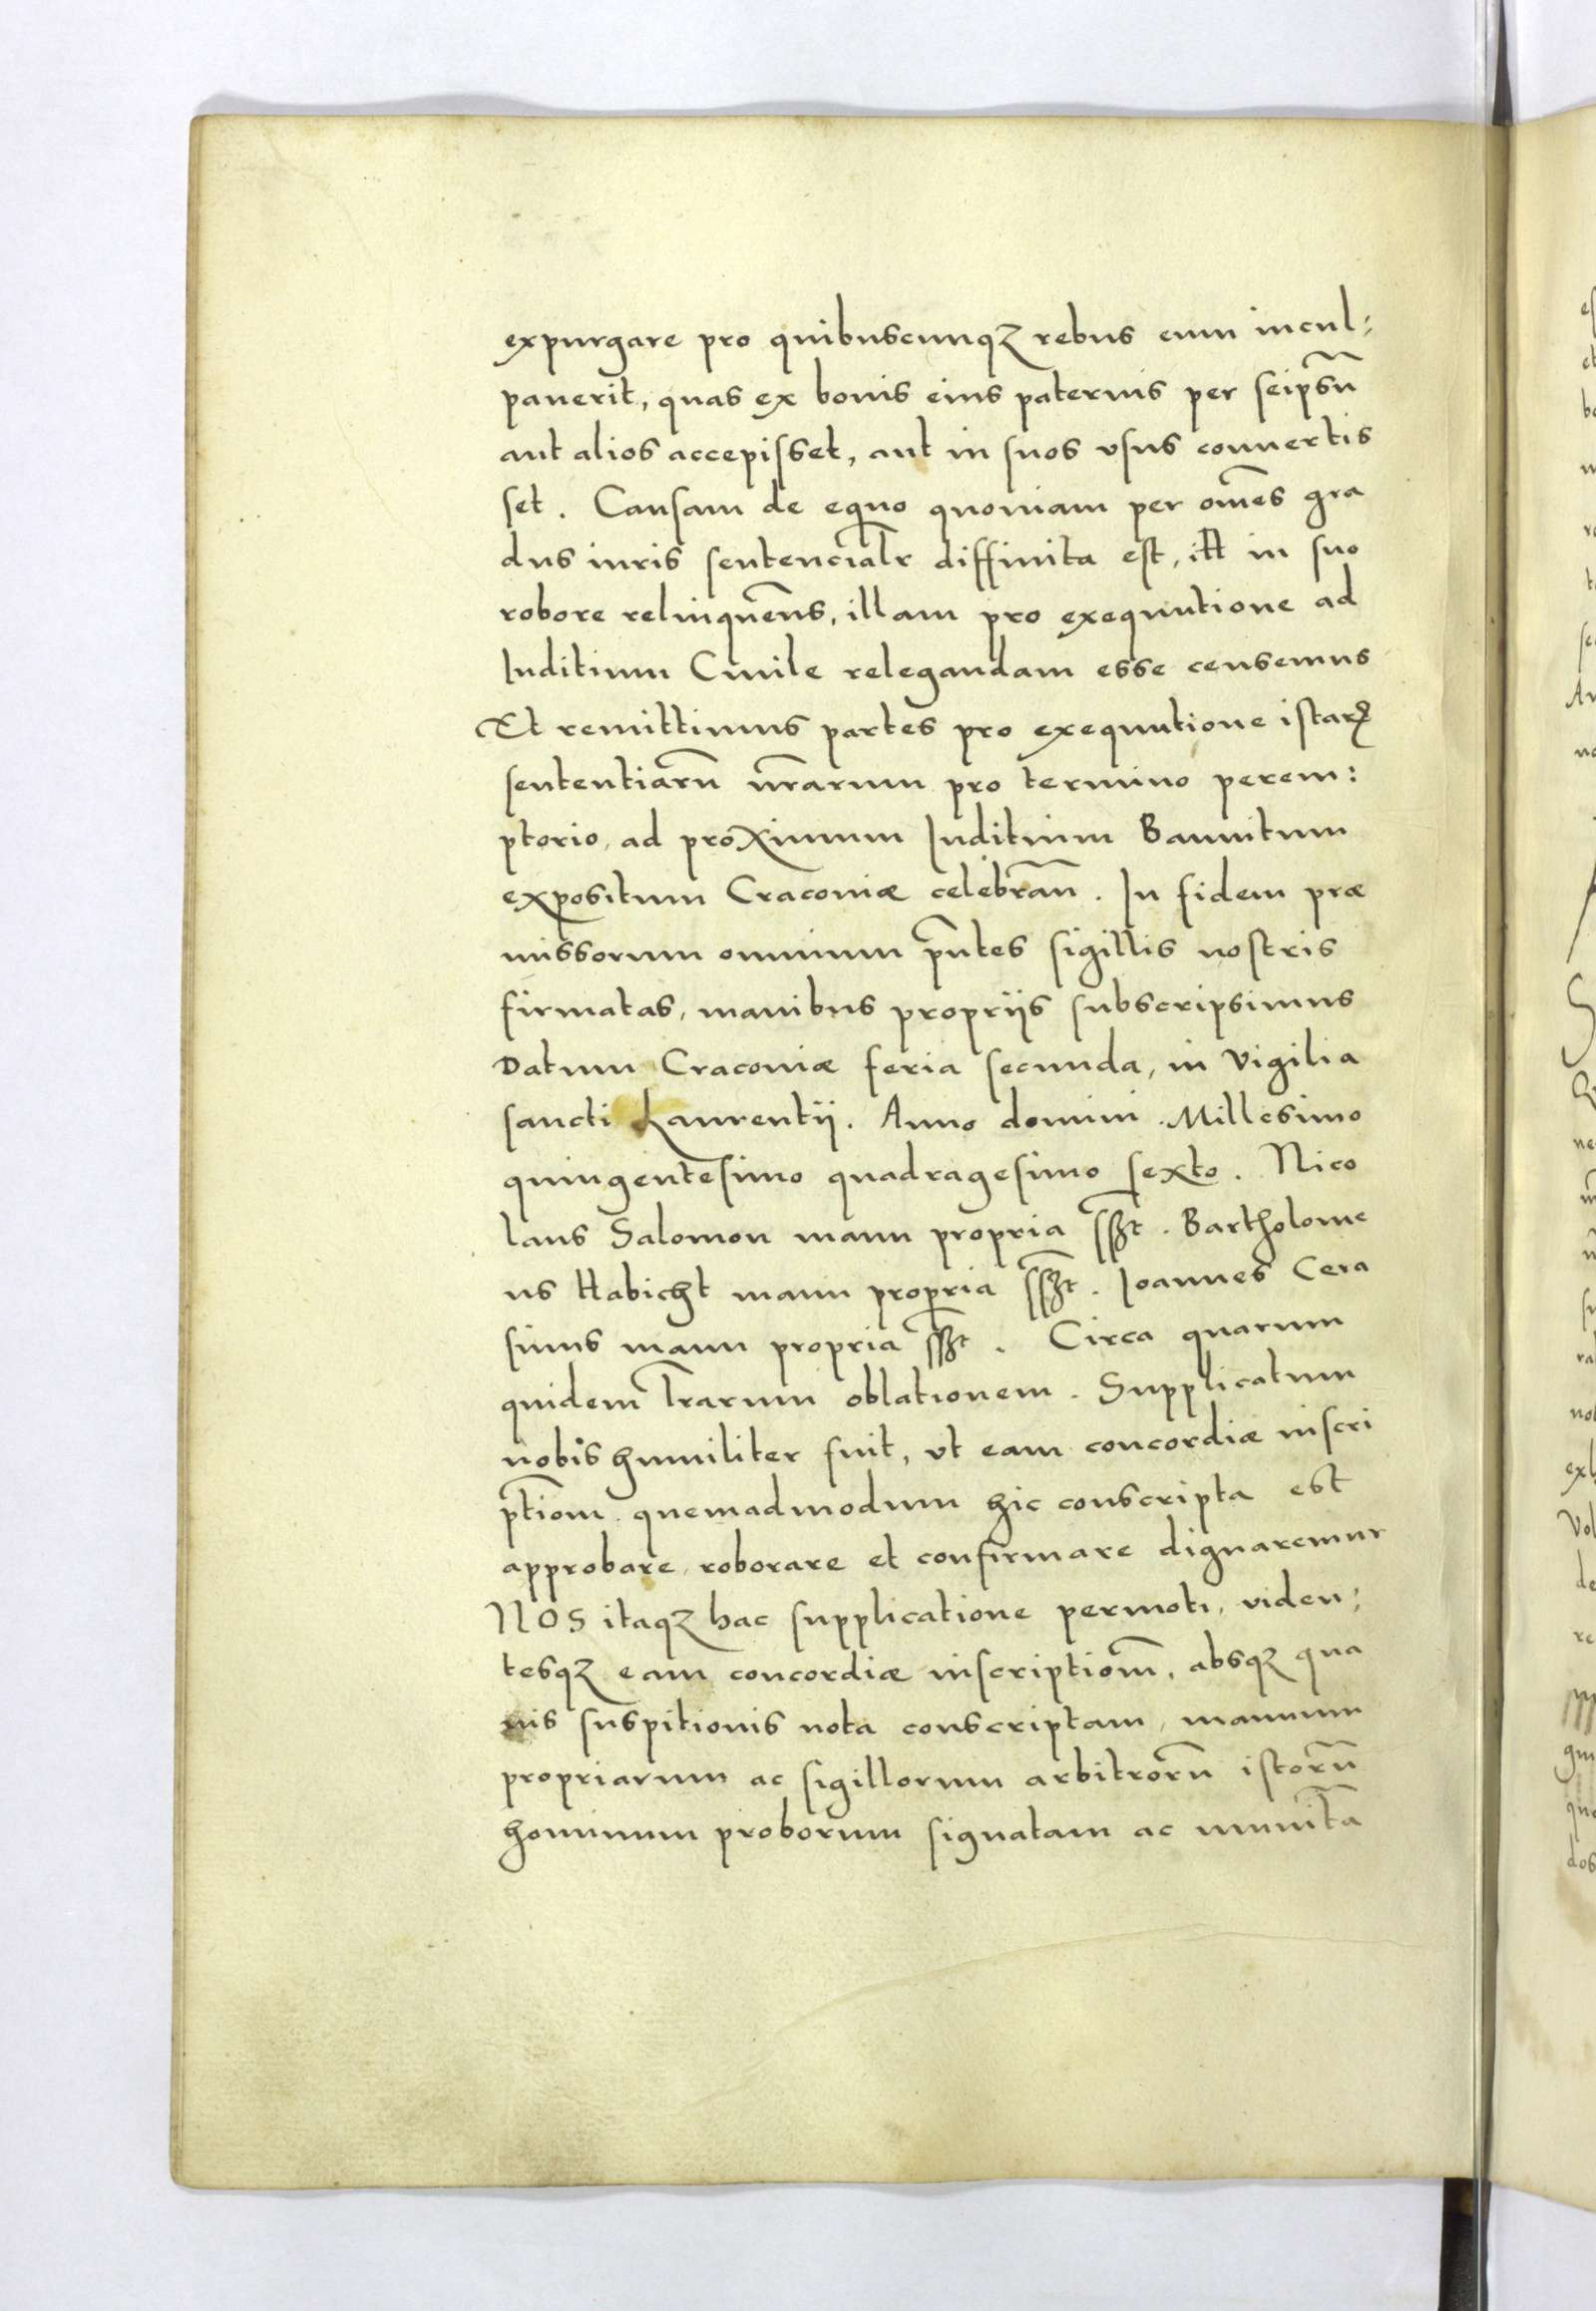 expurgare pro quibuscunqꝫ rebus eum incul;
pauerit, quas ex bonis eius paternis per seipsū
aut alios accepisset, aut in suos vsus conuertis
set. Causam de equo quoniam per om̄es gra
dus iuris sentencialr̄ diffinita est, itt in suo
robore relinquēns, illam pro exequutione ad
Iuditium Ciuile relegandam esse censemus
Et remittimus partes pro exequutione istarꝝ
sententiarū nr̄arum pro termino perem:
ptorio, ad proximum Iuditium Bannitum
expositum Cracouiæ celebrān. In fidem præ
missorum omnium pn̄tes sigillis nostris
firmatas, manibus proprijs subscripsimus
Datum Cracouiæ feria secunda, in Vigilia
sancti Laurentij. Anno domini Millesimo
quingentesimo quadragesimo sexto. Nico
laus Salomon manu propria ss̄zt. Bartholome
us Habicht manu propria ss̄zt. Ioannes Cera
sinus manu propria ss̄zt. Circa quarum
quidem lr̄arum oblationem. Supplicatum
nobis humiliter fuit, vt eam concordiæ inscri
pt̄iom quemadmodum hic conscripta est
approbare, roborare et confirmare dignaremur
NOS itaqꝫ hac supplicatione permoti, viden;
tesqꝫ eam concordiæ inscriptiom̄, absqꝫ qua
uis suspitionis nota conscriptam, manuum
propriarum ac sigillorum arbitrorū istorū
hominum proborum signatam ac munitā